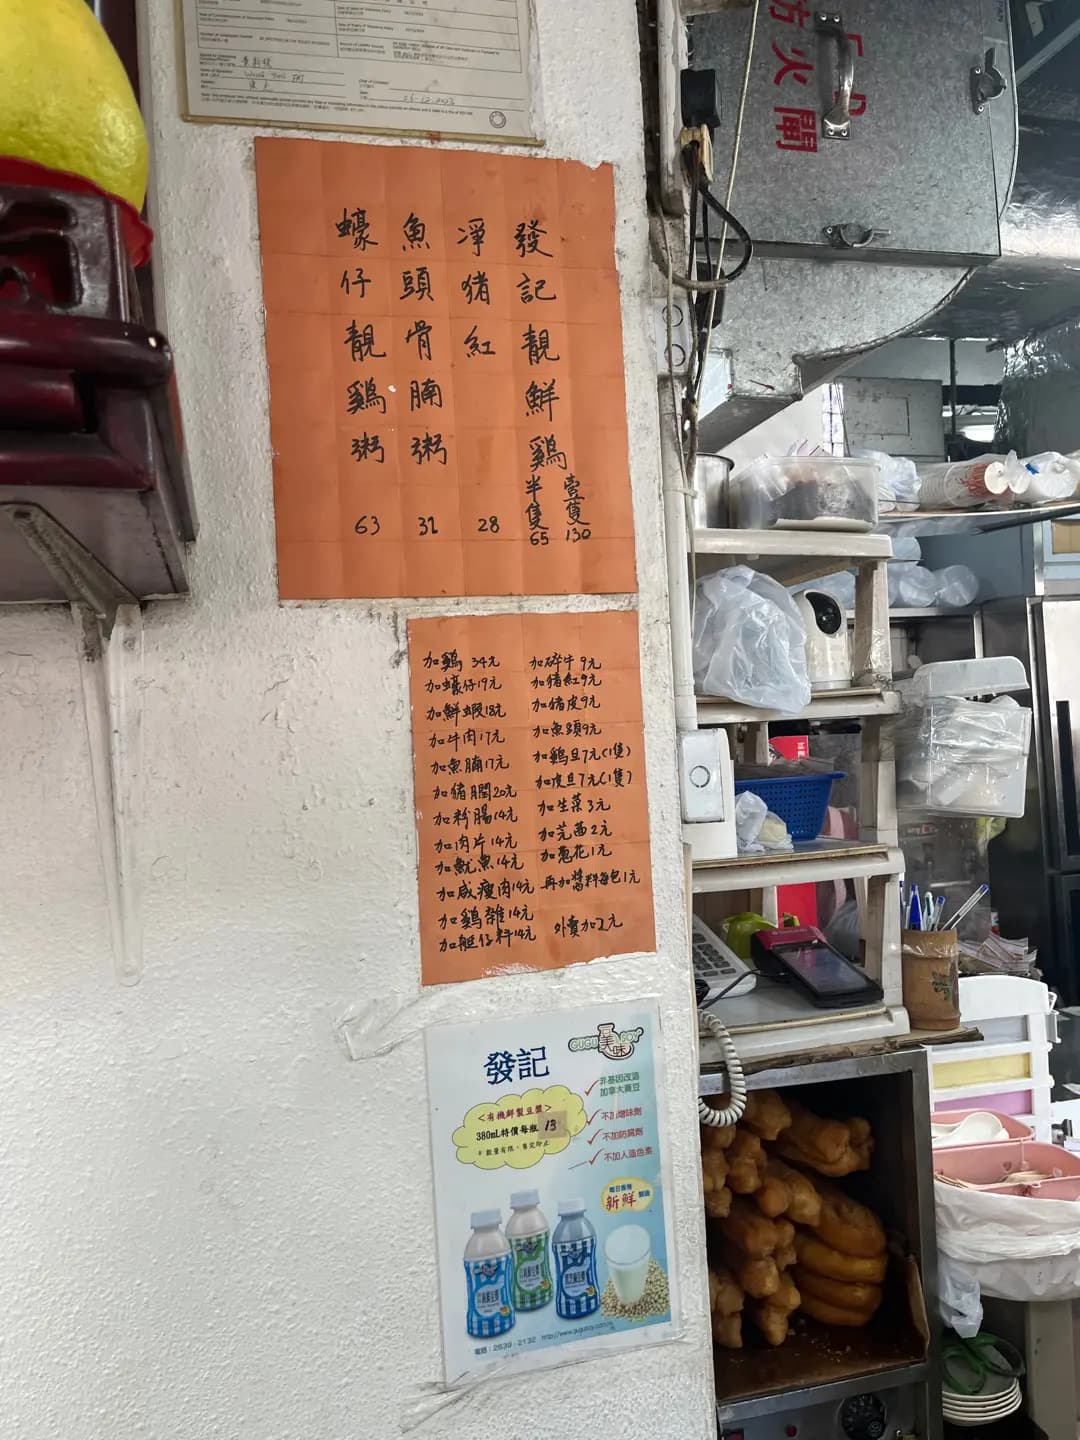 WONG YING FAT
防火閘
發記靚鮮鷄
壹隻130
半隻65
凈豬紅 28
魚頭骨腩粥 31
蠔仔靚鷄粥 63
加鷄 34元
加蠔仔19元
加鮮蝦18元
加牛肉17元
加魚腩17元
加豬膶20元
加粉腸14元
加肉片14元
加魷魚14元
加咸瘦肉14元
加鷄雜14元
加艇仔料14元
加碎牛9元
加豬紅9元
加豬皮9元
加魚頭9元
加鷄旦7元(1隻)
加皮旦7元(1隻)
加生菜3元
加芫茜2元
加蔥花1元
再加醬料每包1元
外賣加2元
GUGU 豆美味 SOY
發記
<有機鮮製豆漿>
380mL特價每瓶 13
# 數量有限，售完即止
非基因改造
加拿大黃豆
不加增味劑
不加防腐劑
不加人造色素
每日香港
新鮮製造
電話：2639-2132 http://www.gugusoy.com